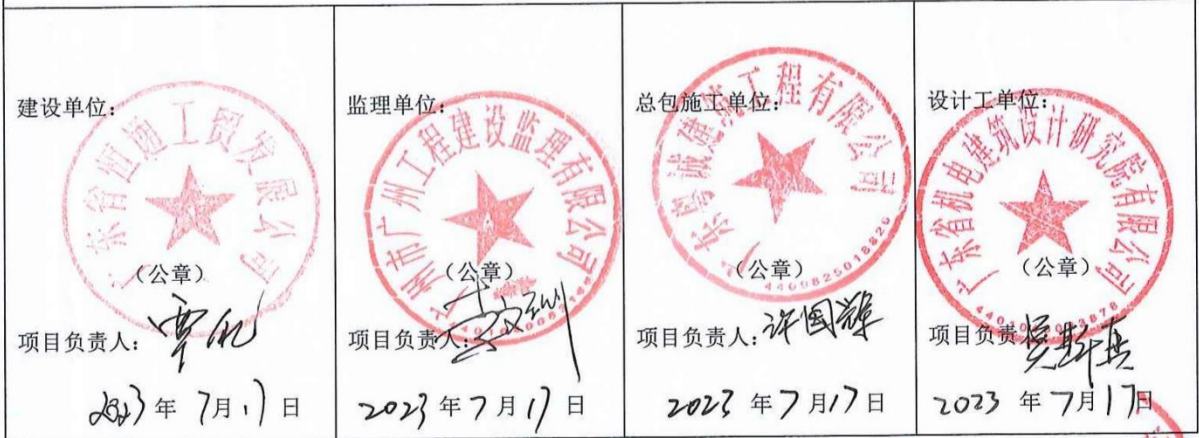 建设单位:
广东省恒通工贸发展公司
(公章)
项目负责人:
2023年7月17日
监理单位:
广州市广州工程建设监理有限公司
(公章)
项目负责人:
2023年7月17日
总包施工单位:
广东粤诚建筑工程有限公司
(公章)
4409825018826
项目负责人:许国辉
2023年7月17日
设计工单位:
广东省机电建筑设计研究院有限公司
(公章)
项目负责
2023年7月17日